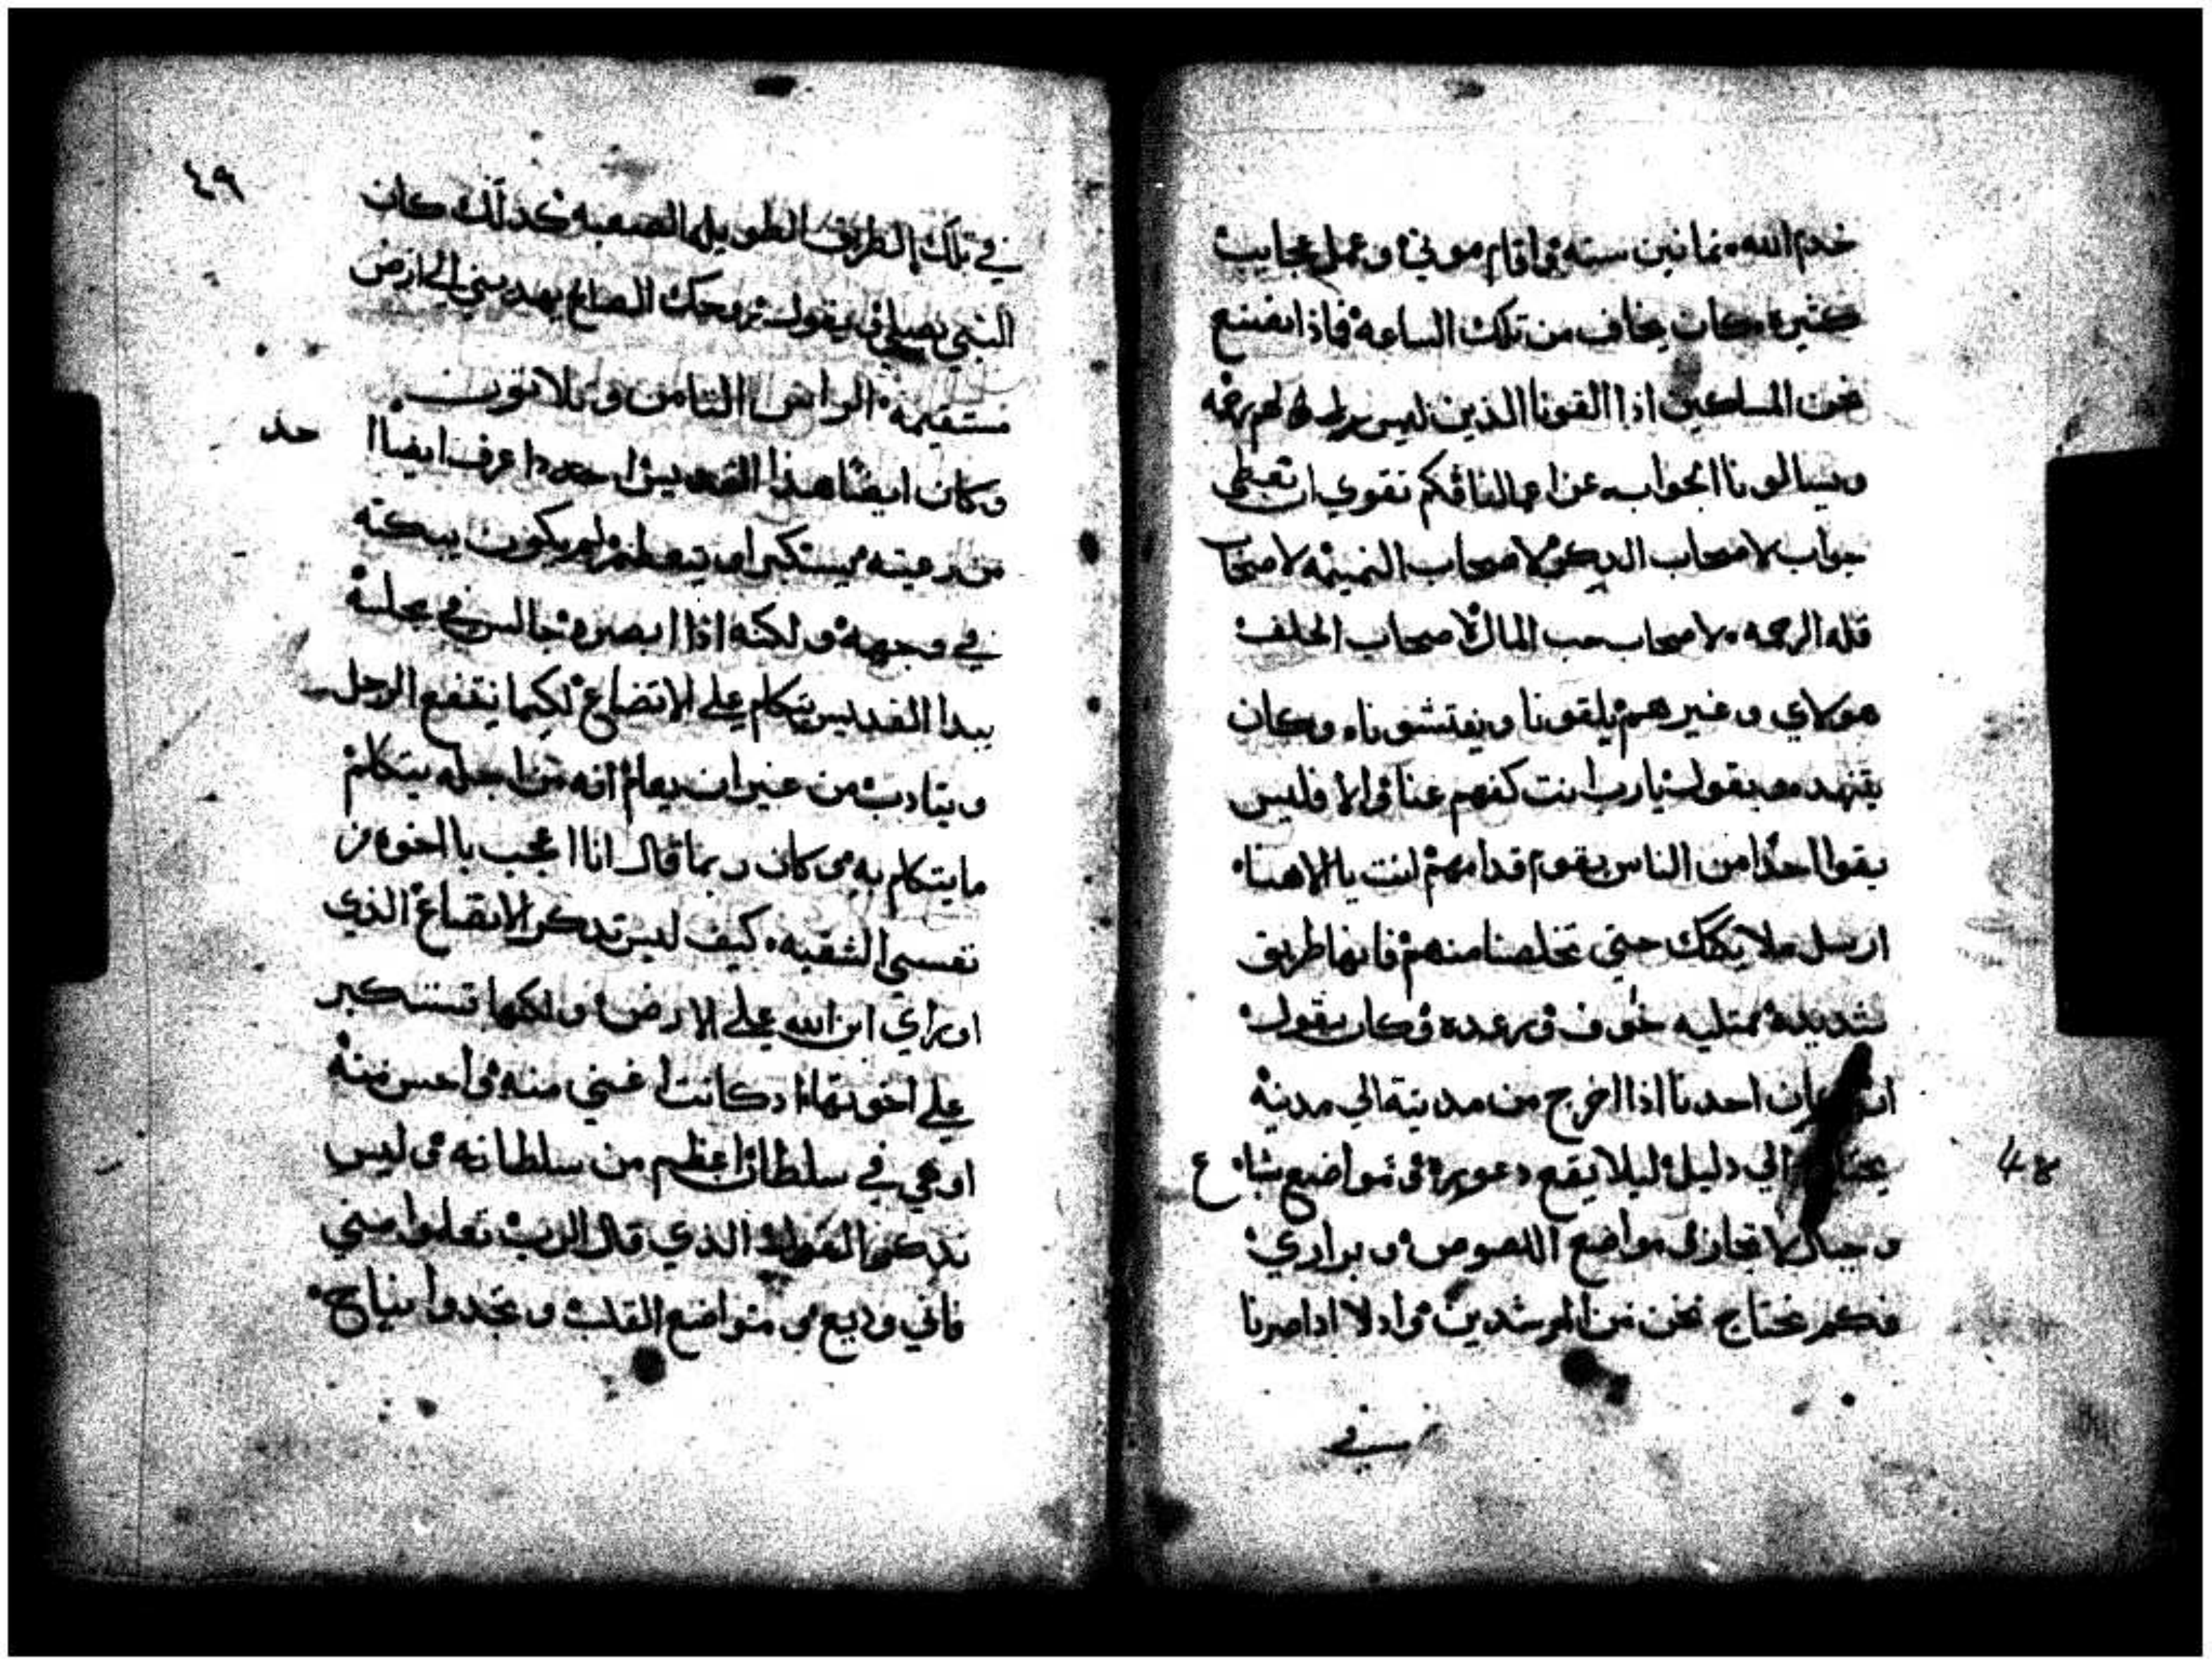 خدم الله ثمانين سنه واقام موتي وعمل عجايب
كثيره كان يخاف من تلك الساعه فماذا نصنع
نحن المساكين اذا القونا الذين ليس لهم رحمه
ويسالونا الجواب عن اعمالنا فكم نقوي ان نعطي
جواب لاصحاب لاصحاب النميمه لاصحاب
قله الرحمه لاصحاب حب المال لاصحاب الحلف
هولاي وغيرهم يلقونا ويفتشونا وكان
يتنهد ويقول يارب انت كفهم عنا والا فليس
يقوا احدا من الناس يقوم قدامهم انت يا الاهنا
ارسل ملايكتك حتي تخلصنا منهم فانها طريق
شديده ممتليه خوف ورعده وكان يقول
ان كان احدنا اذا اخرج من مدينة الي مدينة
يحتاج الي دليل ليلا يقع في مواضع سباع
وجبال مواضع اللصوص وبراري
فكم نحتاج نحن من المرشدين وادلا اذا صرنا
في
٤٨
٤٩
في تلك الطريق الطويله الصعبه كذلك كان
النبي يصلي ويقول روحك الصالح يهديني الي ارض
مستقيمه الراس الثامن وثلاثون
وكان ايضا هذا القديس اذا عرف ايضا ا حد
من رعيته يستكبر او يتعظم لم يكون يبكته
في وجهه ولكنه اذا ابصره جالس في مجلسه
يبدا القديس يتكلم علي الاتضاع لكيما ينتفع الرجل
ويتادب من غير ان يعلم انه من اجله يتكلم
ما يتكلم به وكان ربما قال انا اعجب يا اخوه من
نفسي الشقيه كيف ليس تذكر الاتضاع الذي
اوراي ابن الله علي الارض ولكنها تستكبر
علي اخوتها اذ كانت اغني منه واحسن منه
او هي في سلطان اعظم من سلطانه وليس
تذكر القول الذي قال الرب تعلموا مني
فاني وديع ومتواضع القلب وتجدوا نياح